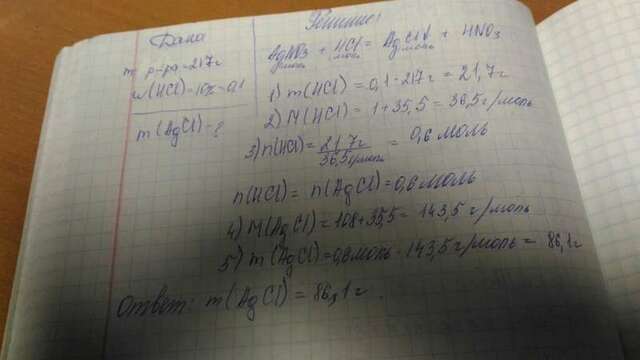 Дано
m р-ра=217г
ω(HCl)=10%=0,1
m(AgCl)-?
Решение!
AgNO3 + HCl = AgCl↓ + HNO3
1моль 1моль 1моль
1) m(HCl) = 0,1·217г = 21,7г
2) M(HCl) = 1+35,5 = 36,5г/моль
3) n(HCl) = 21,7г / 36,5г/моль = 0,6 моль
n(HCl) = n(AgCl) = 0,6 моль
4) M(AgCl) = 108+35,5 = 143,5 г/моль
5) m(AgCl) = 0,6моль · 143,5 г/моль = 86,1г
Ответ: m(AgCl) = 86,1г.